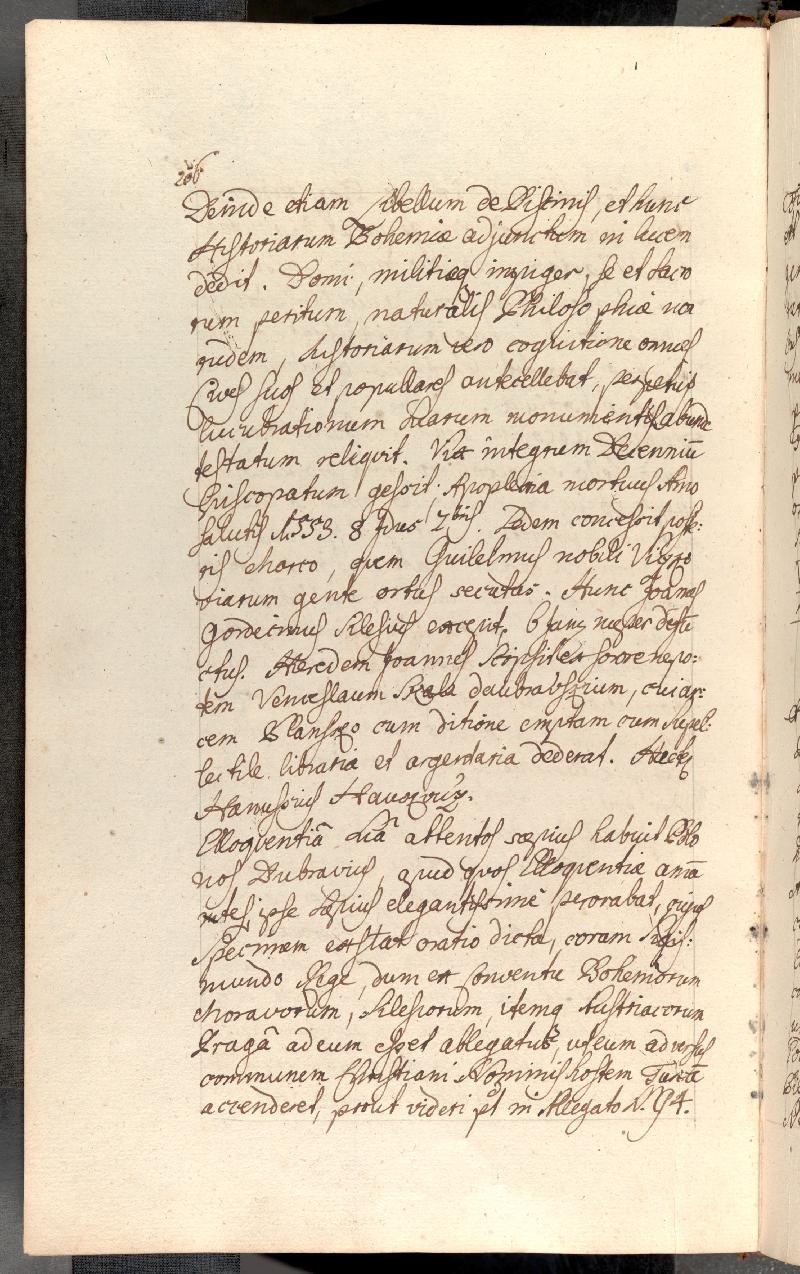 206
Deinde etiam Libellum de Piscinis, et hunc
Historiarum Bohemiæ adjunctum in lucem
dedit. Domi, militiæq impiger, se et sacro
rum peritum, naturalis Philosophiæ non
rudem, historiarum vero cognitione omnes
Cives suos et popullares antecellebat, perpetuis
lucubrationum suarum monumentis abunde
testatum reliqvit. Vix integrum Decenniū
Episcopatum gessit; Apoplexia mortuus Año
Salutis 1553. 8 Idus 7bris. Sedem concessit poste:
ris Marco, qvem Guilelmus nobili Victo
riarum gente ortus secutus. Hunc Joanes
Grodecinus Silesius excepit,
ctus. Heredem Joannes scripsit ex sorore nepo:
tem Venceslaum Skala daubravszium, cui ar:
cem cum ditione emptam cum supel:
lectile libraria et argentaria dederat. Hæc
Hanussius
Elloqventiâ suâ attentos sæpius habuit Polo
nos Dubravius, apud qvos Elloqventiæ amā
ntes, ipse sæpius elegantissimè perorabat, cujus
specimem exstat oratio dicta, coram Sigis:
mundo Rege, dum ex Conventu Bohemorum
Moravorum, Silesiorum, itemq Austriacorum
Pragâ ad eum esset ablegatus, ut eum adversus
communem Christiani Nominis hostem Turcā
accenderet, prout videri pt in Allegato N. 94.